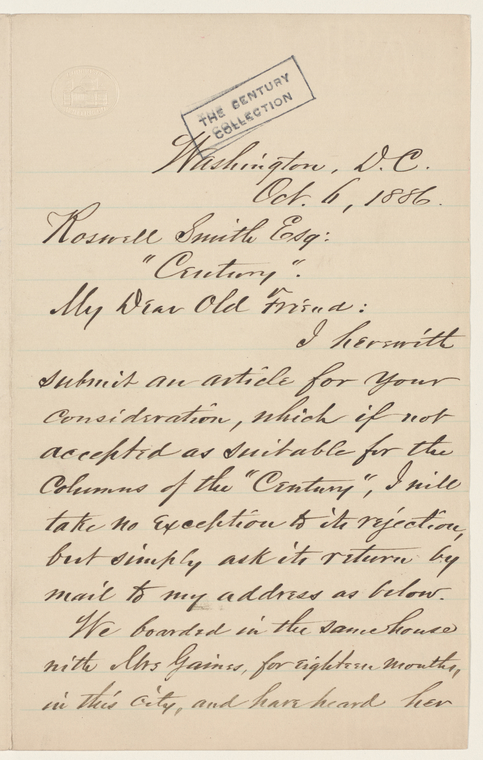 THE CENTURY
COLLECTION
Washington, D.C.
Oct. 6, 1886.
Roswell Smith Esq:
"Century".
My Dear Old Friend:
I herewith
submit an article for your
consideration, which if not
accepted as suitable for the
columns of the "Century", I will
take no exception to its rejection,
but simply ask its return by
mail to my address as below.
We boarded in the same house
with Mrs Gaines, for eighteen months,
in this city, and have heard her